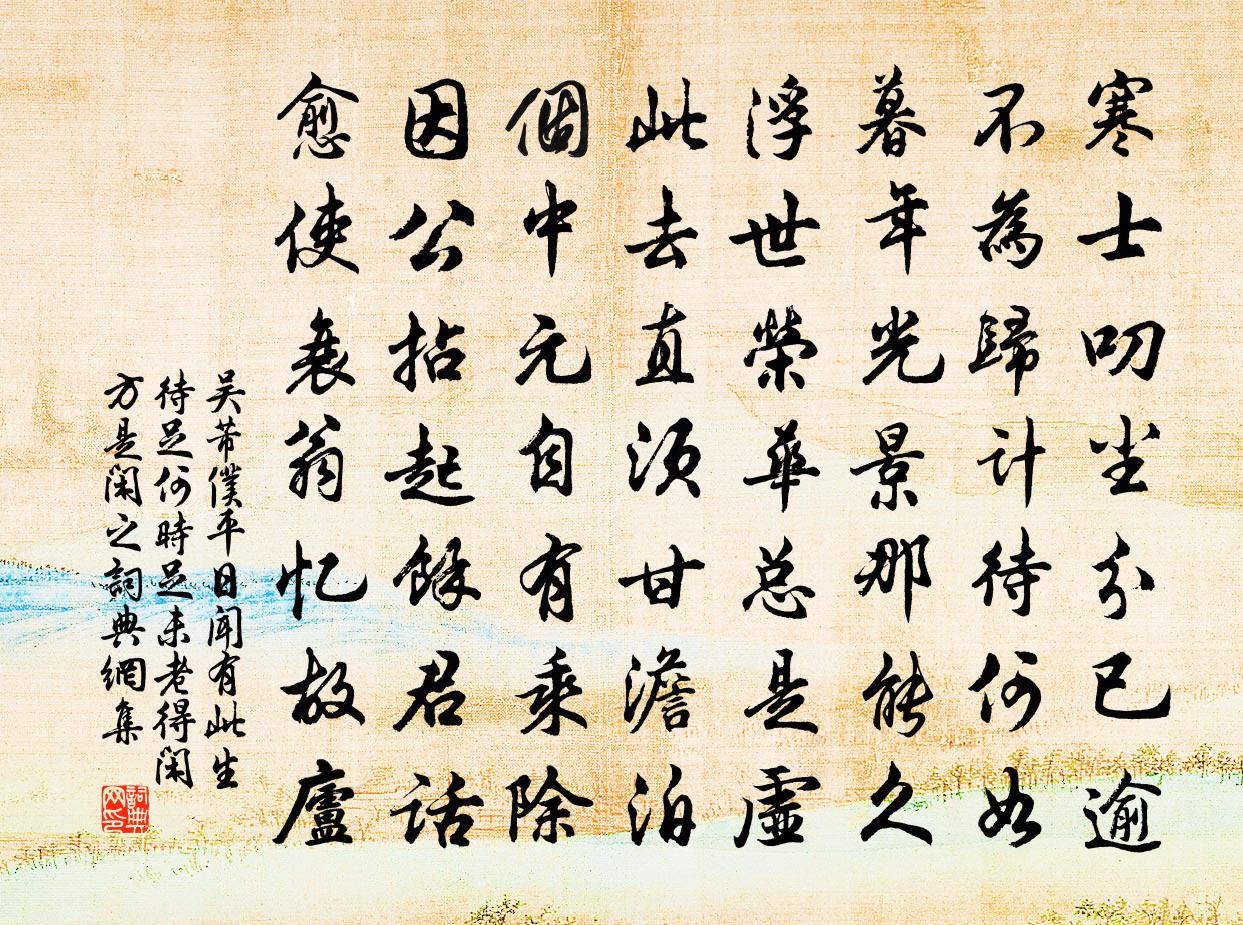 寒士叨尘分已逾
不為歸計待何如
暮年光景那能久
浮世榮華总是虛
此去直須甘澹泊
個中元自有乘除
因公拈起餘君话
愈使衰翁忆故廬
吴芾僕平日闻有此生
待足何時足未老得闲
方是闲之詞典網集
詞典
网印